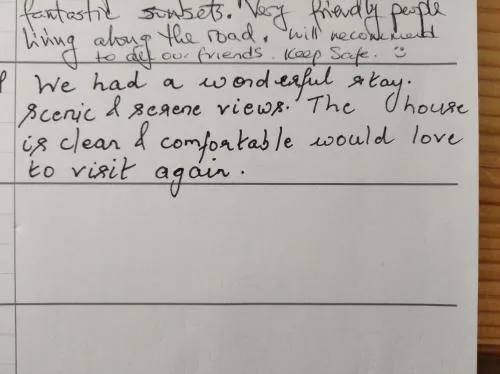 fantastic sunsets. Very friendly people
living along the road. will recommend
to all our friends. Keep Safe.
We had a wonderful stay.
Scenic & serene views. The house
is clean & comfortable would love
to visit again.